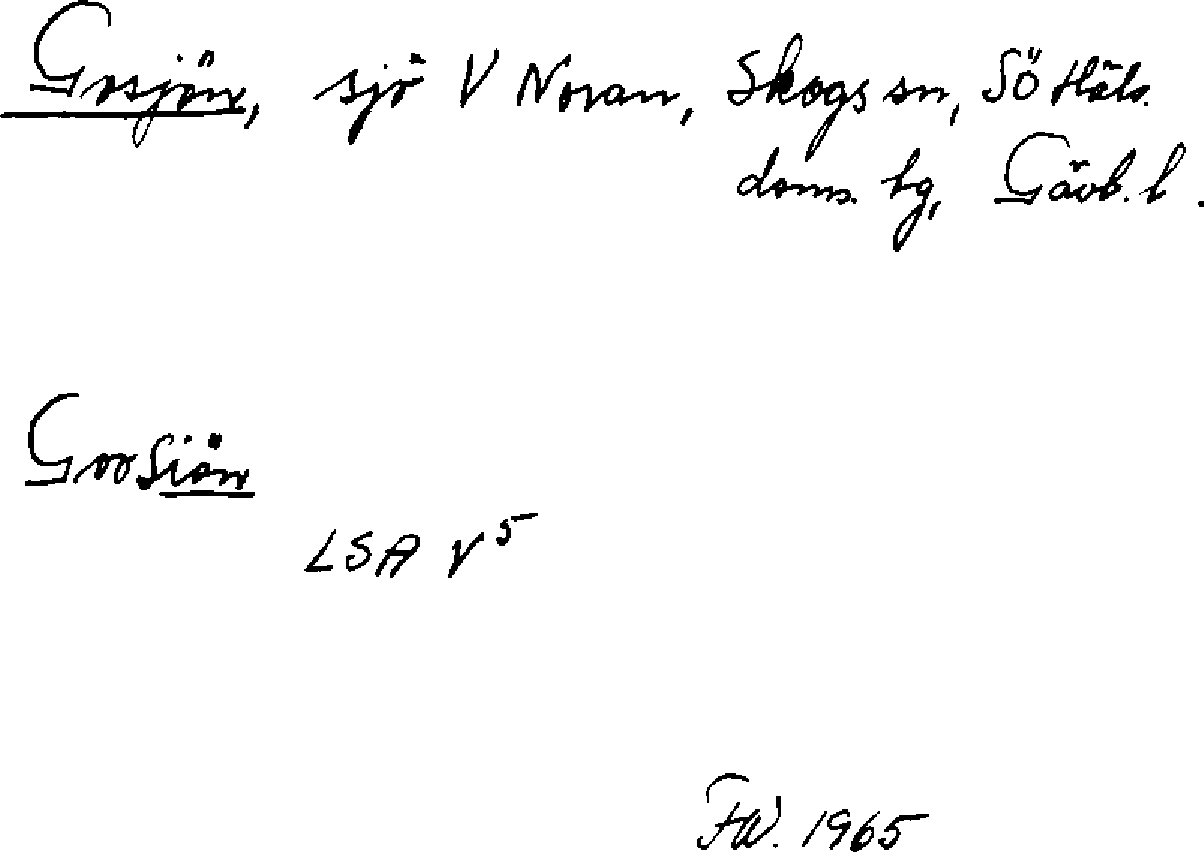 Gosjön, sjö V Noran, Skogs sn, Sö Häls.
doms. hg, Gävb. l.
Goosiön
LSA V5
FW. 1965